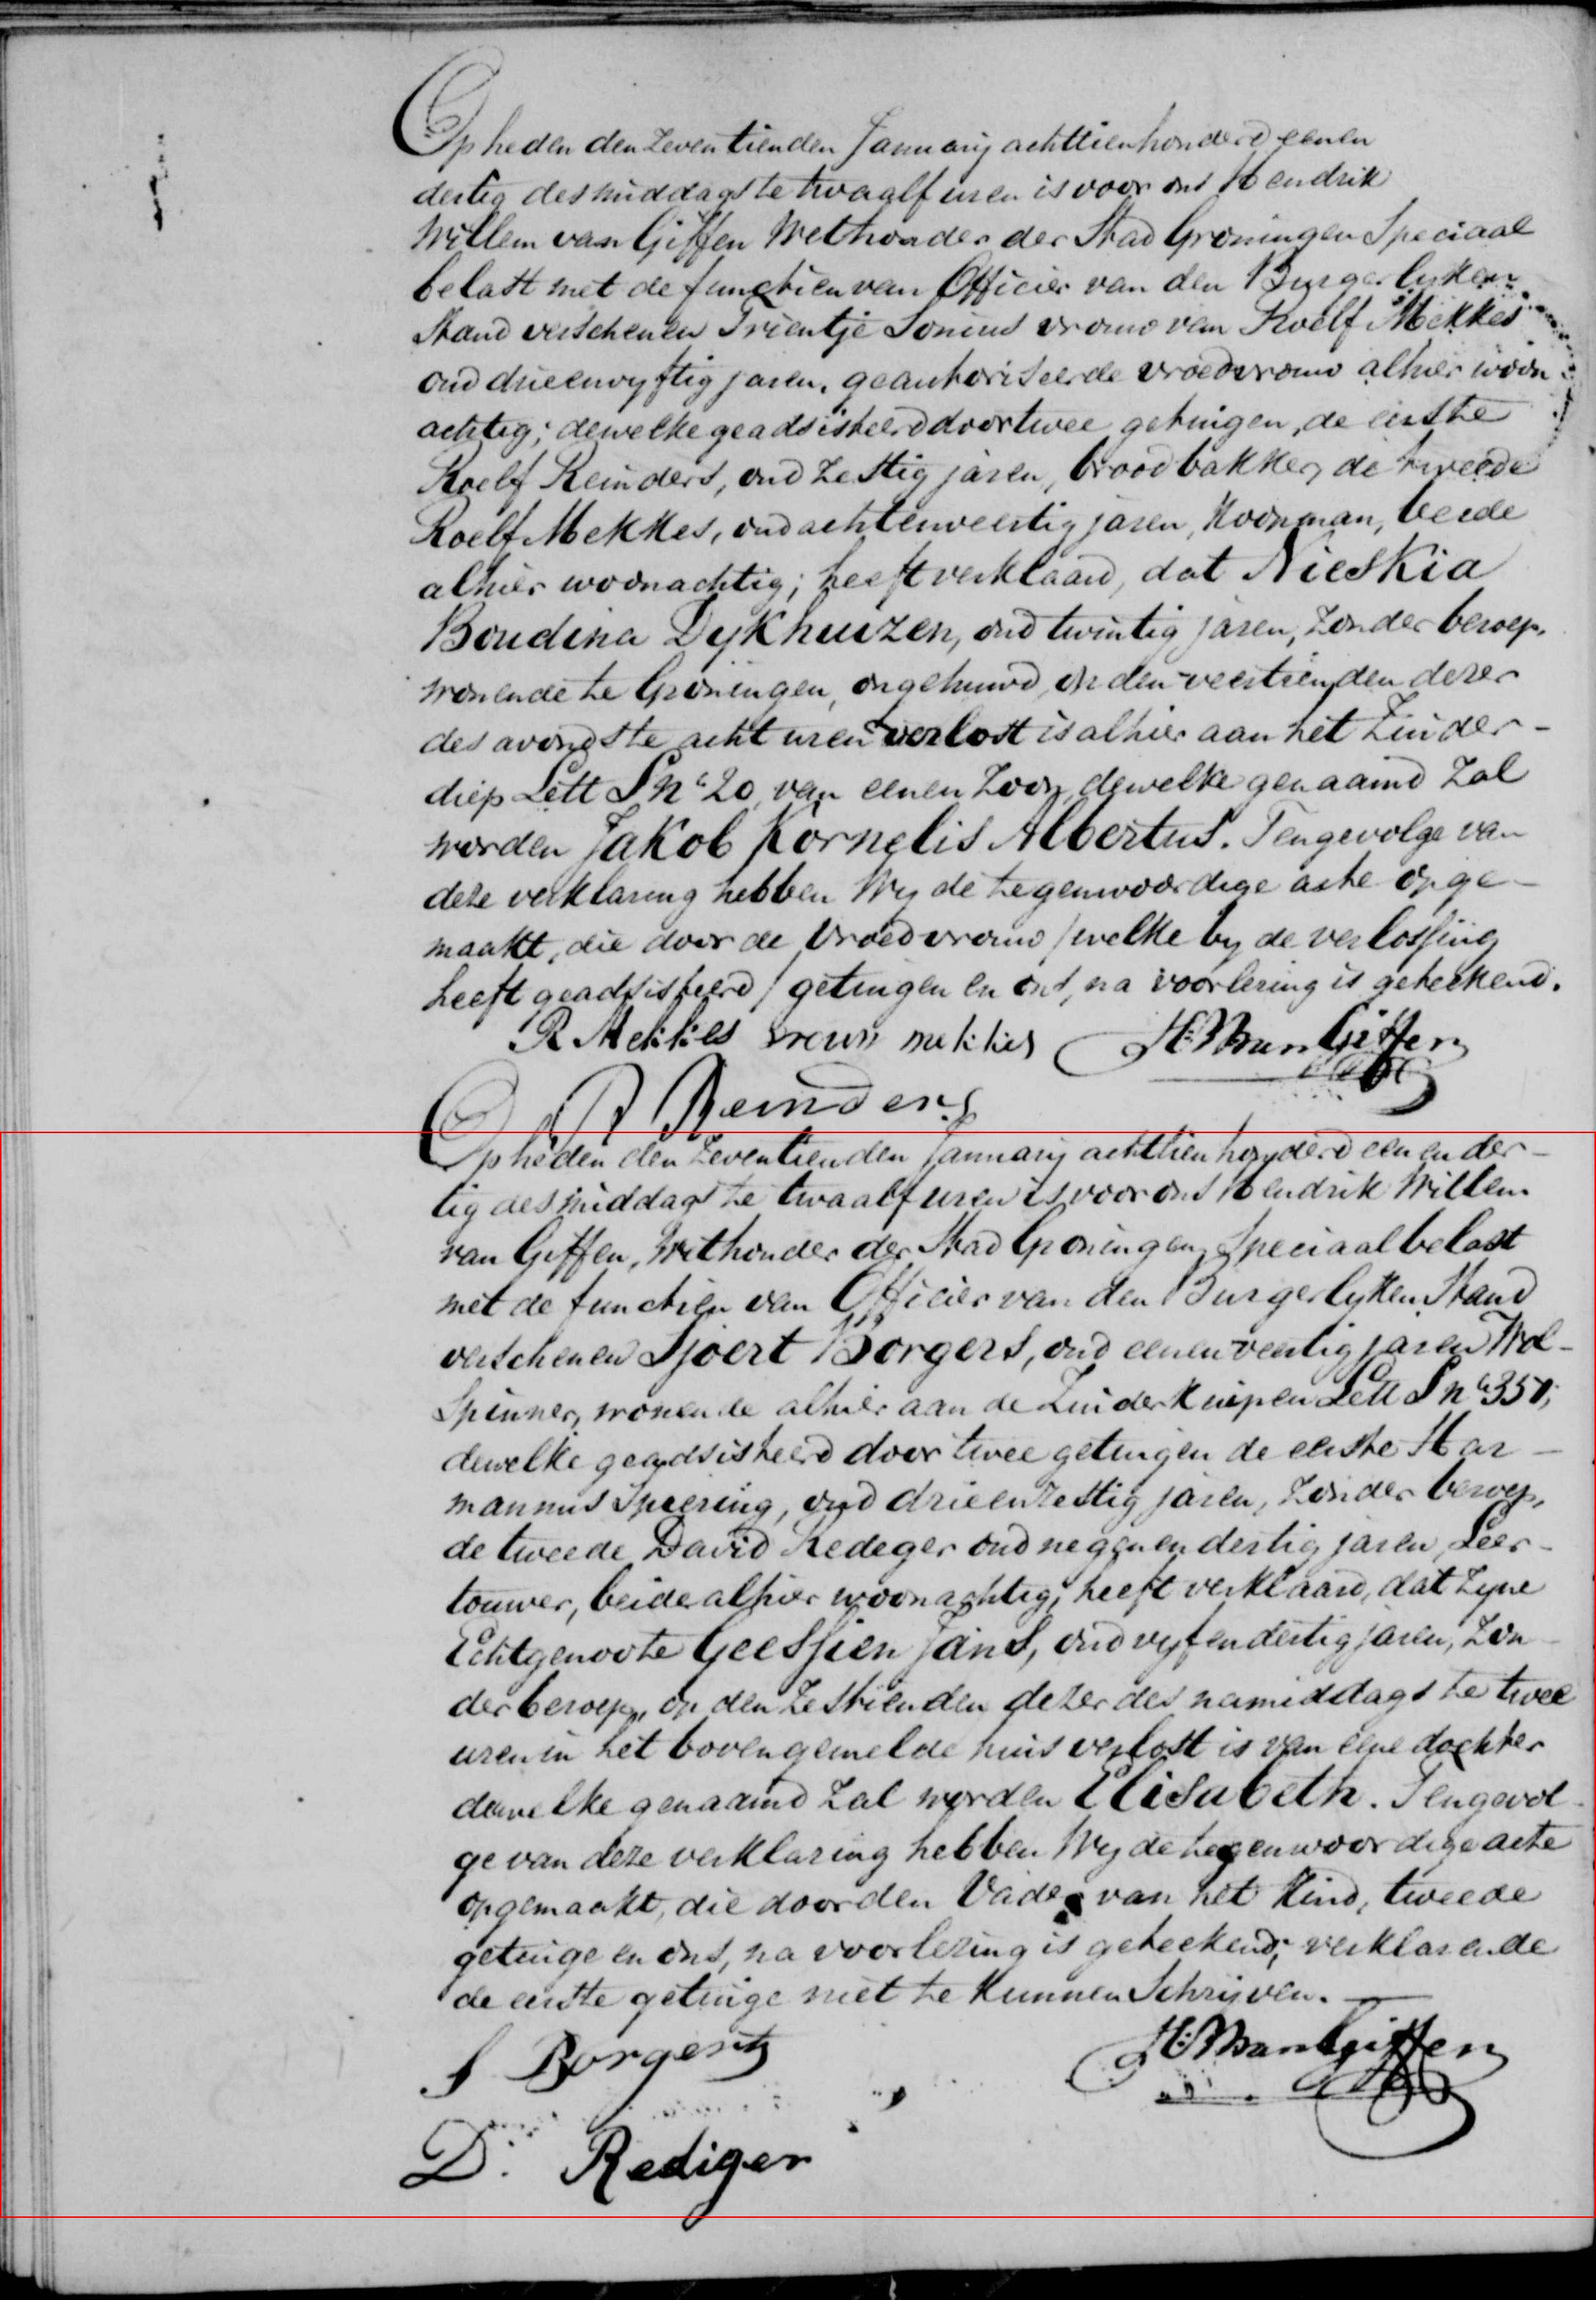 Op heden den zeventienden January achttienhonderd eenen
dertig des middags te twaalf uren is voor ons Hendrik
Willem van Giffen Wethouder der Stad Groningen Speciaal
belast met de functien van Officier van den Burgerlyken
Stand verschenen Trientje Sonius vrouw van Roelf Mekkes
oud drieenvyftig jaren, geauthoriseerde vroedvrouw alhier woon
achtig; dewelke geadsisteerd door twee getuigen, de eerste
Roelf Reinders, oud zestig jaren, broodbakker, de tweede
Roelf Mekkes, oud achtenveertig jaren, Koopman, beide
alhier woonachtig; heeft verklaard, dat Nieskia
Boudina Dykhuizen, oud twintig jaren, zonder beroep,
wonende te Groningen, ongehuwd, op den veertienden dezer
des avonds te acht uren verlost is alhier aan het Zuider-
diep Lett S no 20, van eenen Zoon, dewelke genaamd zal
worden Jakob Kornelis Albertus. Tengevolge van
deze verklaring hebben Wy de tegenwoordige acte opge-
maakt, die door de Vroedvrouw /welke by de verlossing
heeft geadsisteerd/ getuigen en ons, na voorlezing is geteekend.
R Mekkes vrouw mekkes HW van Giffen
R Reinders
Op heden den zeventienden January achttienhonderd een en der-
tig des middags te twaalf uren is voor ons Hendrik Willem
van Giffen, Wethouder der Stad Groningen, Speciaal belast
met de functien van Officier van den Burgerlyken Stand
verschenen Sjoert Borgers, oud eenenveertig jaren Wol-
Spinner, wonende alhier aan de Zuiderkuipen Lett S no 350;
dewelke geadsisteerd door twee getuigen de eerste Har-
mannus Spiering, oud drieenzestig jaren, zonder beroep,
de tweede David Redeger oud negenendertig jaren, Leer-
touwer, beide alhier woonachtig, heeft verklaard, dat zyne
Echtgenoote Geessien Jans, oud vyfendertig jaren, zon-
der beroep, op den zestienden dezer des namiddags te twee
uren in het bovengemelde huis verlost is van eene dochter
dewelke genaamd zal worden Elisabeth. Tengevol-
ge van deze verklaring hebben Wy de tegenwoordige acte
opgemaakt, die door den Vader van het Kind, tweede
getuige en ons, na voorlezing is geteekend; verklarende
de eerste getuige niet te kunnen Schryven.
S Borgers HW van Giffen
D. Rediger